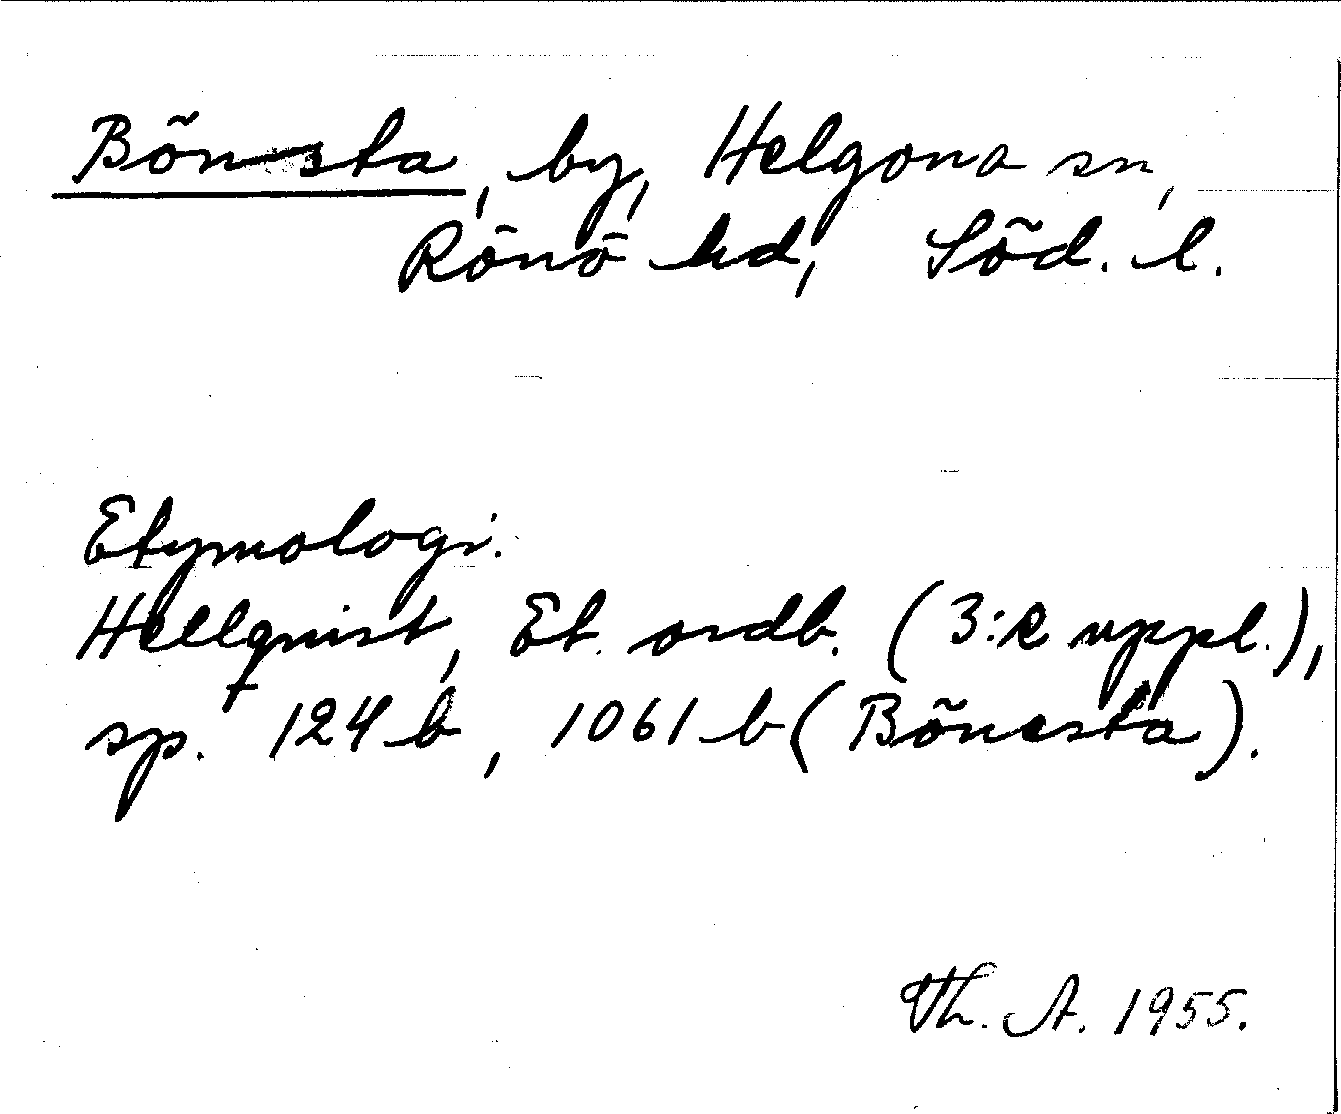 Bönsta, by, Helgona sn,
Rönö hd, Söd. l.
Etymologi.
Hellquist, Et. ordb. (3:e uppl.),
sp. 124 b, 1061 b (Bönesta).
Th. A. 1955.